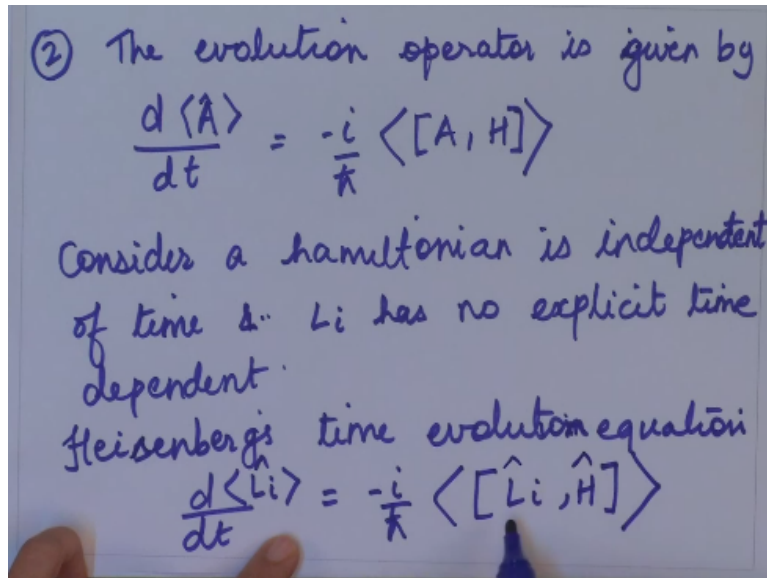 ② The evolution operator is given by
d⟨Â⟩/dt = -i/ħ ⟨[A, H]⟩
Consider a hamiltonian is independent
of time & Li has no explicit time
dependent.
Heisenberg's time evolution equation
d⟨L̂i⟩/dt = -i/ħ ⟨[L̂i, Ĥ]⟩